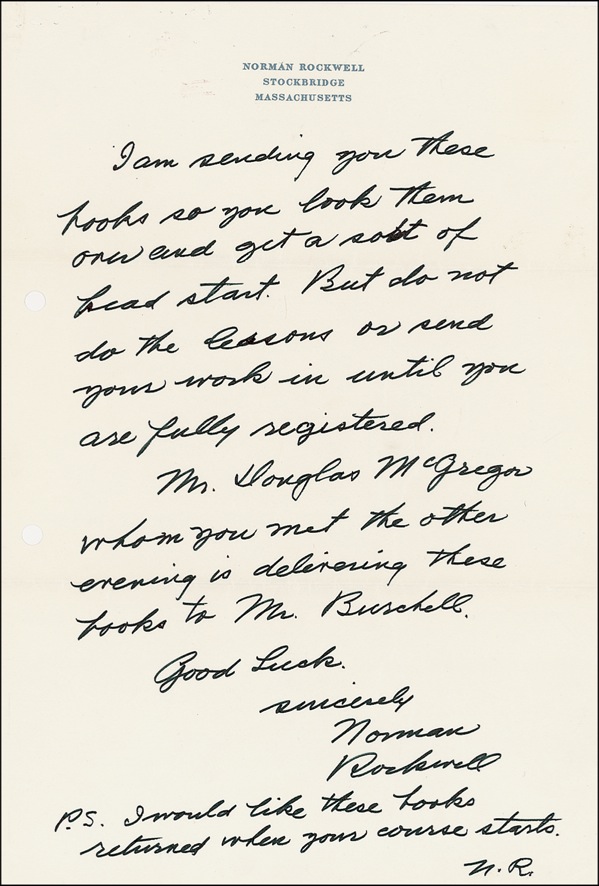 NORMAN ROCKWELL
STOCKBRIDGE
MASSACHUSETTS
I am sending you these
books so you look them
over and get a sort of
head start. But do not
do the lessons or send
your work in until you
are fully registered.
Mr. Douglas McGregor
whom you met the other
evening is delivering these
books to Mr. Burchell.
Good Luck.
sincerely
Norman
Rockwell
P.S. I would like these books
returned when your course starts.
N.R.